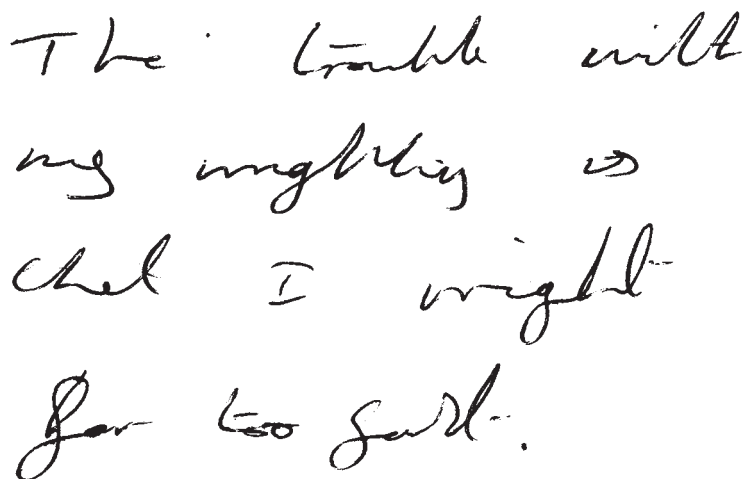 The trouble with
my wrighting is
that I wright
far too fast.